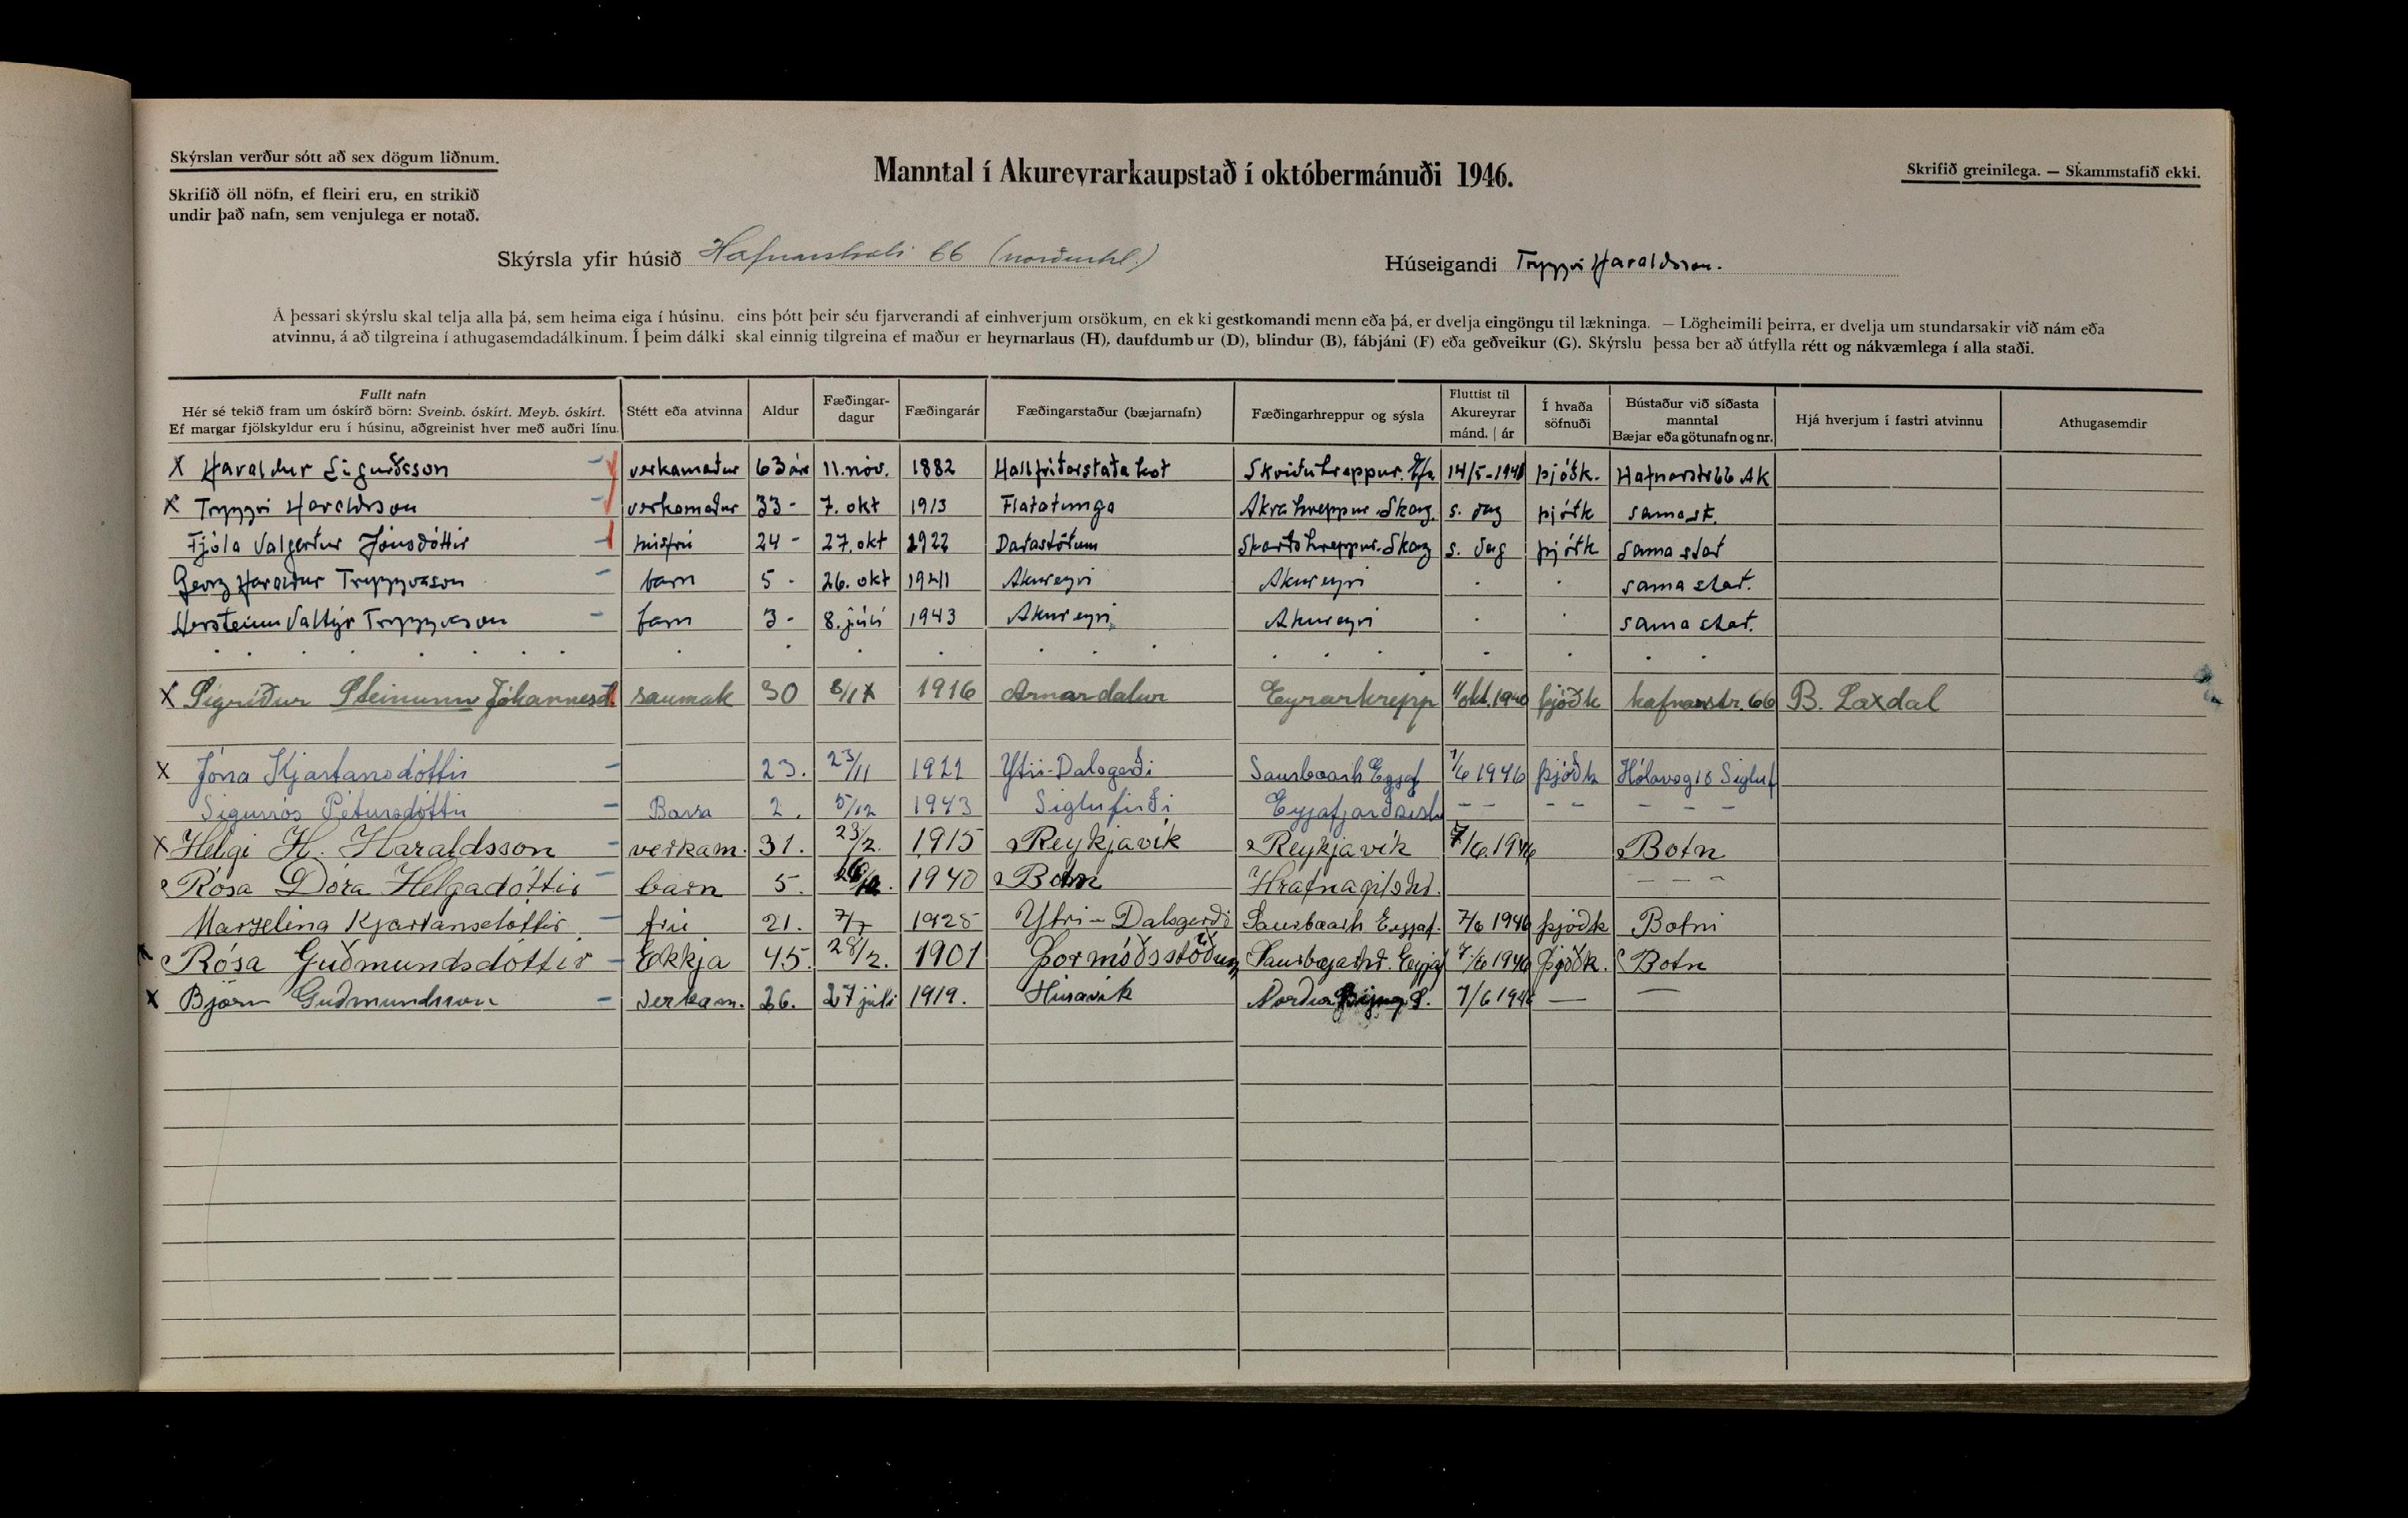 Skýrslan verður sótt að sex dögum liðnum.
Skrifið öll nöfn, ef fleiri eru, en strikið
undir það nafn, sem venjulega er notað.
Manntal í Akureyrarkaupstað í októbermánuði 1946.
Skrifið greinilega. — Skammstafið ekki.
Skýrsla yfir húsið Hafnarstræti 66 (norðurhl.)
Húseigandi Tryggvi Haraldsson.
Á þessari skýrslu skal telja alla þá, sem heima eiga í húsinu, eins þótt þeir séu fjarverandi af einhverjum orsökum, en ekki gestkomandi menn eða þá, er dvelja eingöngu til lækninga. — Lögheimili þeirra, er dvelja um stundarsakir við nám eða
atvinnu, á að tilgreina í athugasemdadálkinum. Í þeim dálki skal einnig tilgreina ef maður er heyrnarlaus (H), daufdumbur (D), blindur (B), fábjáni (F) eða geðveikur (G). Skýrslu þessa ber að útfylla rétt og nákvæmlega í alla staði.
Fullt nafn
Hér sé tekið fram um óskírð börn: Sveinb. óskírt. Meyb. óskírt.
Ef margar fjölskyldur eru í húsinu, aðgreinist hver með auðri línu.
Stétt eða atvinna
Aldur
Fæðingar-
dagur
Fæðingarár
Fæðingarstaður (bæjarnafn)
Fæðingarhreppur og sýsla
Fluttist til
Akureyrar
mánd. | ár
Í hvaða
söfnuði
Bústaður við síðasta
manntal
Bæjar eða götunafn og nr.
Hjá hverjum í fastri atvinnu
Athugasemdir
X Haraldur Sigurðsson - verkamaður 63 ára 11. nóv. 1882 Hallfríðarstaðakot Skriðuhreppur. 14/5-1940 þjóðk. Hafnarstr 66 Ak
X Tryggvi Haraldsson - verkamaður 33 - 7. okt 1913 Flatatunga Akrahreppur. Skag. s. dag þjóðk sama st.
Fjóla Valgerður Jónsdóttir - húsfrú 24 - 27. okt 1922 Daðastöðum Skarðshreppur. Skag s. dag þjóðk sama stað
Georg Haraldur Tryggvason - barn 5 - 26. okt 1941 Akureyri Akureyri " " sama stað.
Hersteinn Valtýr Tryggvason - barn 3 - 8. júlí 1943 Akureyri Akureyri " " sama stað.
X Sigríður Steinunn Jóhannesd. saumak 30 1916 Arnardalur Eyrarhrepp 1/okt. 1940 þjóðk hafnarstr. 66 B. Laxdal
X Jóna Kjartansdóttir - 23. 23/11 1922 Ytri-Dalsgerði Saurbæarh Eyjaf 7/6 1946 þjóðk Hólaveg 18 Sigluf
Sigurrós Pétursdóttir - Barn 2. 5/12 1943 Siglufirði Eyjafjarðarsh - - - - - - -
X Helgi H. Haraldsson - verkam. 31. 23/2. 1915 Reykjavík Reykjavík 7/6. 1946 Botn
Rósa Dóra Helgadóttir - barn 5. 1940 Botn Hrafnagilshr. - - -
Marselína Kjartansdóttir - frú 21. 7/7 1925 Ytri-Dalsgerði Saurbæarh Eyjaf. 7/6 1946 þjóðk Botni
X Rósa Guðmundsdóttir - Ekkja 45. 28/2. 1901 Þormóðsstöðum Saurbæjarhr. Eyjaf 7/6 1946 Þjóðk. Botn
X Björn Guðmundsson - verkam. 26. 27 júli 1919. Húsavík Norður Þing S. 7/6 1946 — —